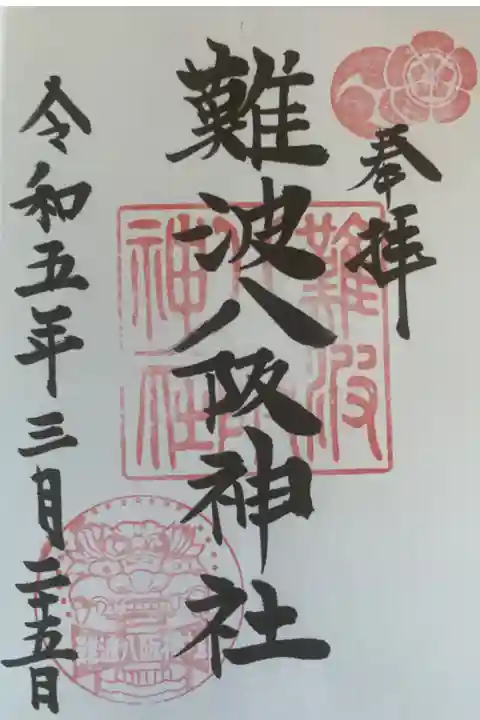 奉拝
難波八阪神社
令和五年三月二十五日
難波
八阪
神社
難波八阪神社